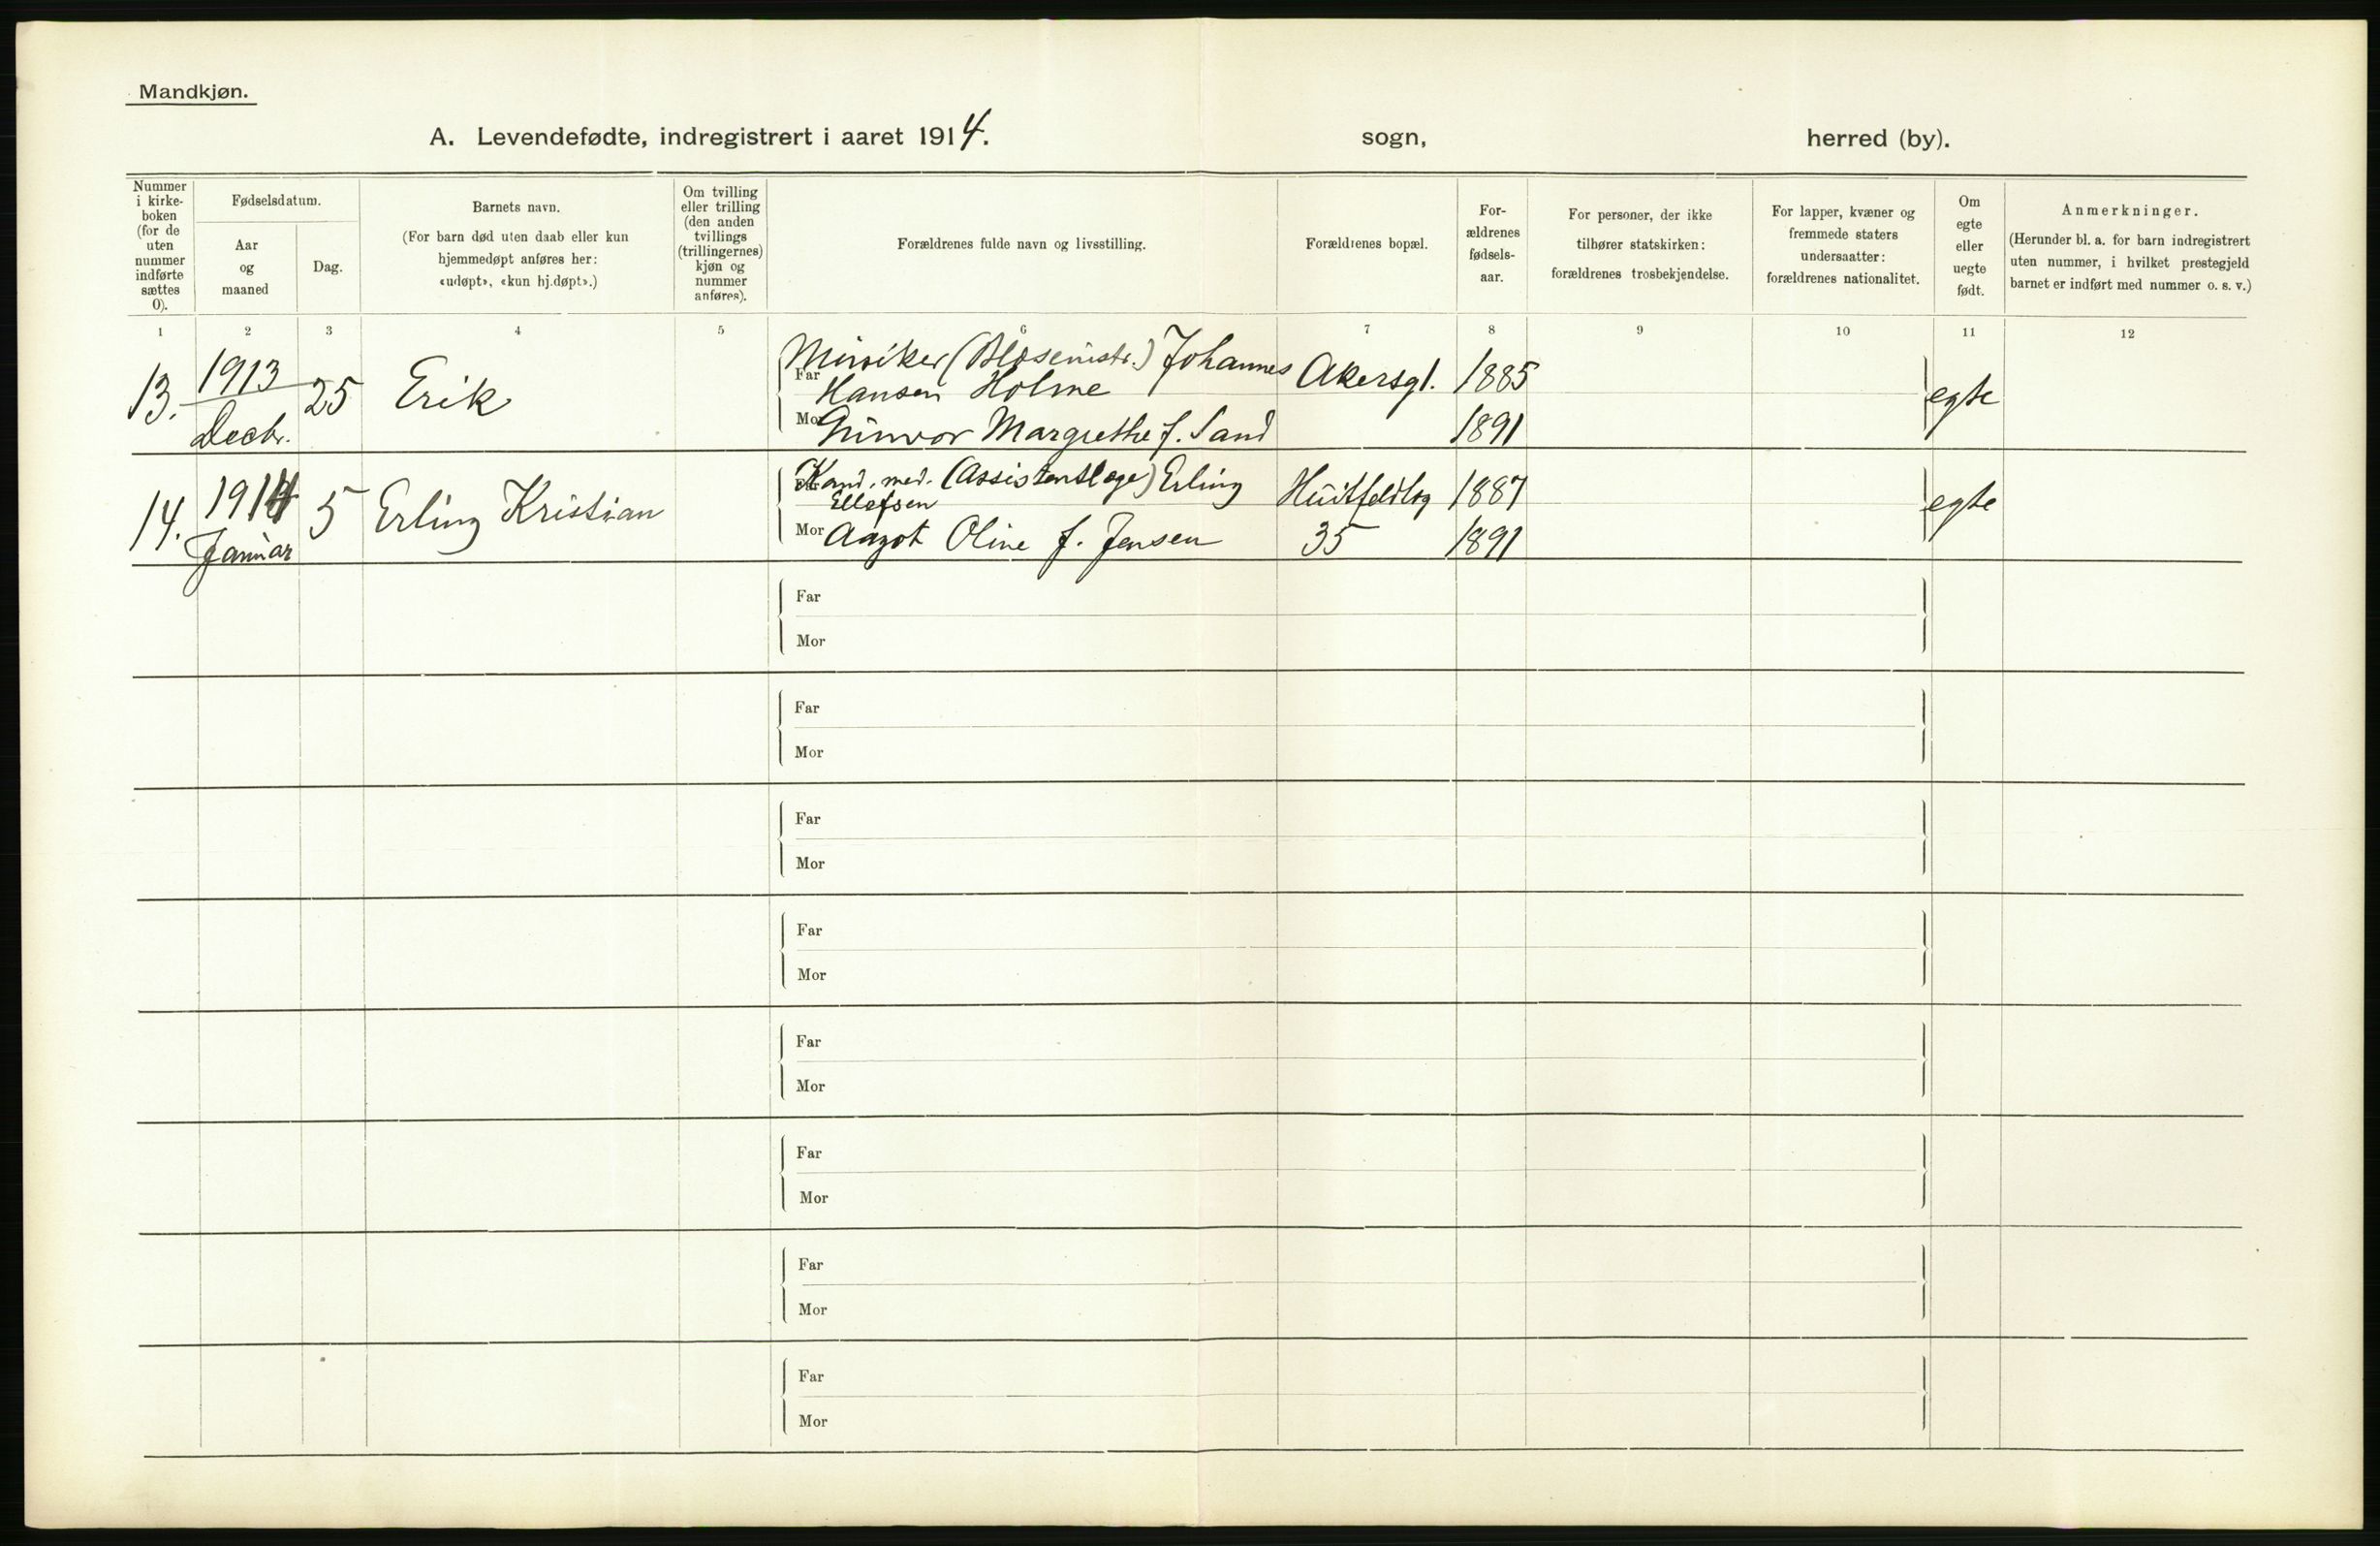 Mandkjøn.
A. Levendefødte, indregistrert i aaret 1914. sogn, herred (by).
Nummer
i kirke-
boken
(for de
uten
nummer
indførte
sættes
0).
Fødselsdatum.
Aar
og
maaned
Dag.
Barnets navn.
(For barn død uten daab eller kun
hjemmedøpt anføres her:
«udøpt», «kun hj.døpt».)
Om tvilling
eller trilling
(den anden
tvillings
(trillingernes)
kjøn og
nummer
anføres).
Forældrenes fulde navn og livsstilling.
Forældrenes bopæl.
For-
ældrenes
fødsels-
aar.
For personer, der ikke
tilhører statskirken:
forældrenes trosbekjendelse.
For lapper, kvæner og
fremmede staters
undersaatter:
forældrenes nationalitet.
Om
egte
eller
uegte
født.
Anmerkninger.
(Herunder bl. a. for barn indregistrert
uten nummer, i hvilket prestegjeld
barnet er indført med nummer o. s. v.)
1 2 3 4 5 6 7 8 9 10 11 12
13. 1913 Decbr. 25 Erik
Far Johannes
Hansen Holme
Akersgt. 1885
Mor Gunvor Margrethe f. Sand
1891
egte
14. 1914 Januar 5 Erling Kristian
Far Kand. med. (Assistentlæge) Erling
Ellefsen
Huitfeldtsg 1887
Mor Aagot Oline f. Jensen
35 1891
egte
Far
Mor
Far
Mor
Far
Mor
Far
Mor
Far
Mor
Far
Mor
Far
Mor
Far
Mor